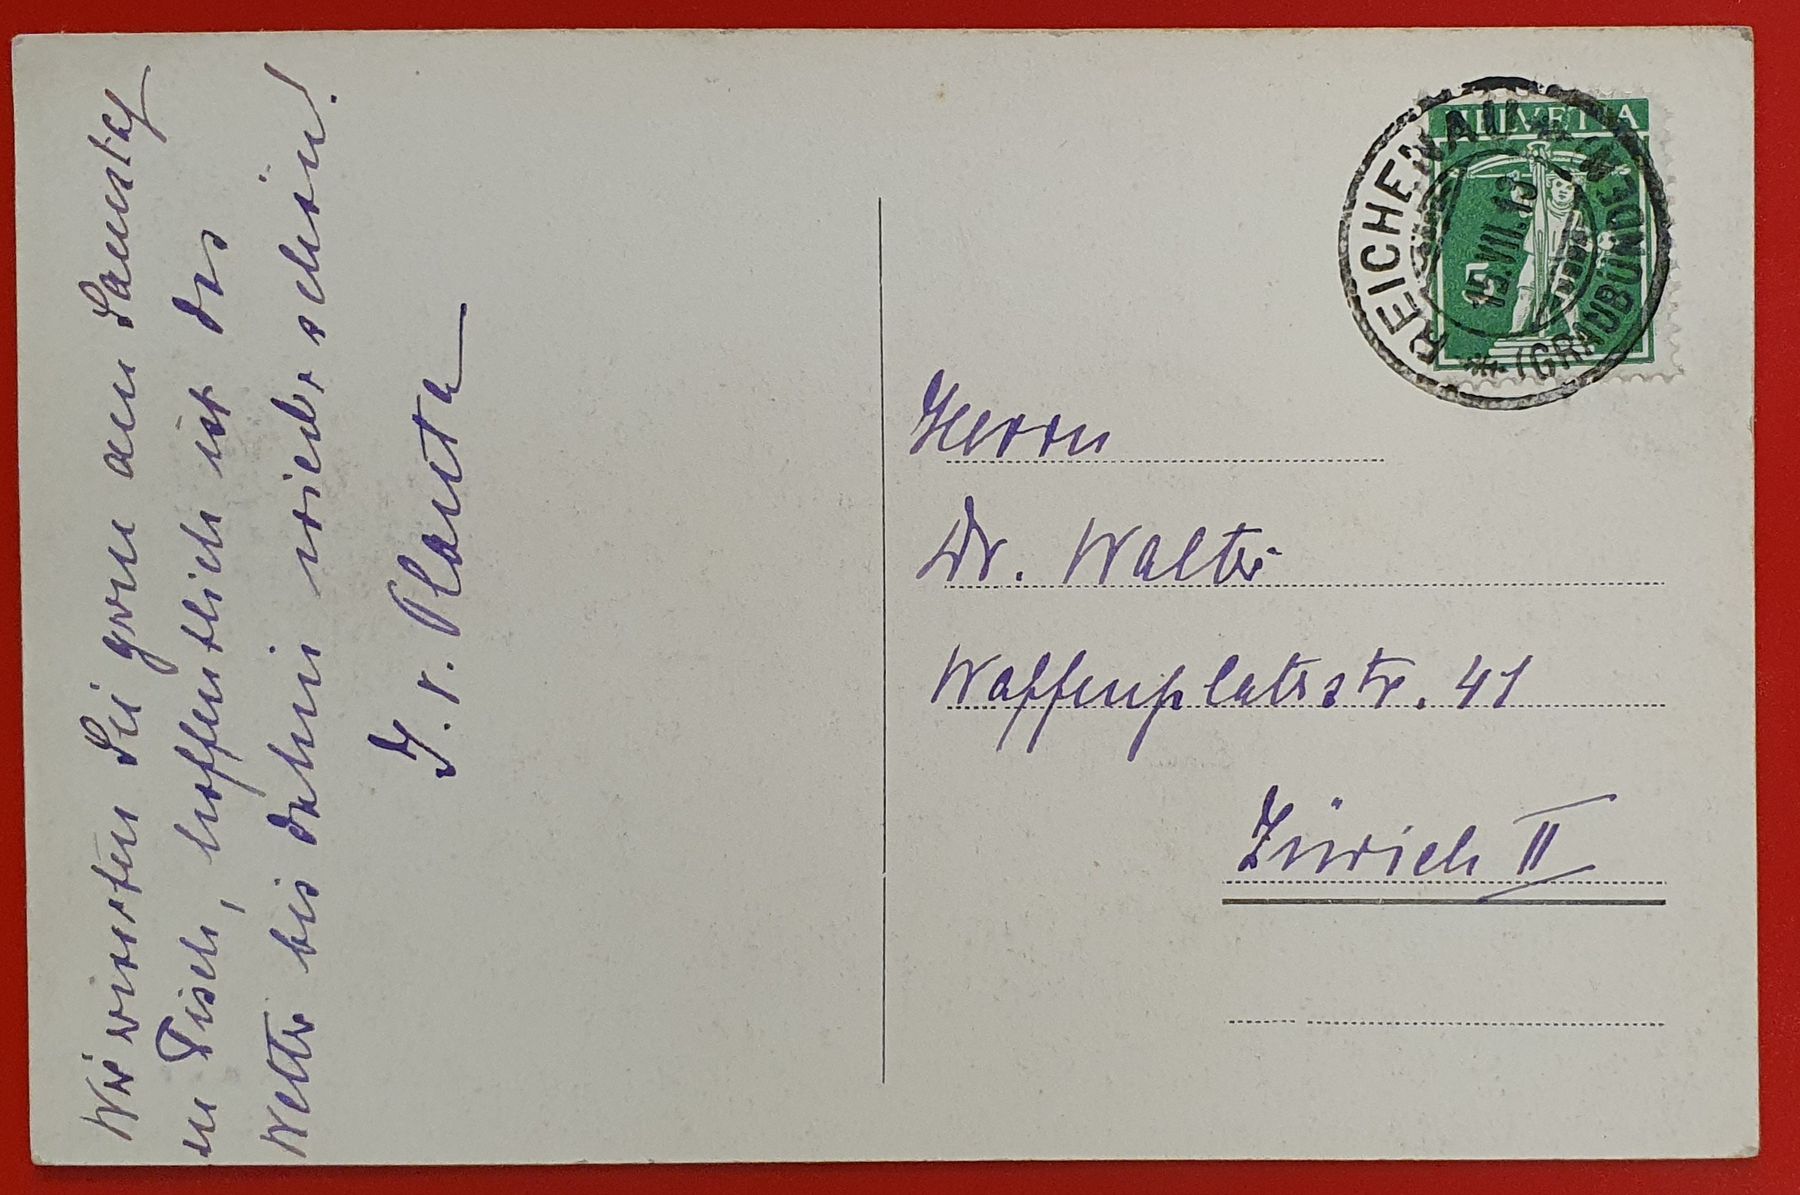 Wir erwarten Sie gern am Samstag
zu Tisch, hoffentlich ist das
Wetter bis dahin wieder schön!
J. v. Planta
HELVETIA
5
REICHENAU
(GRAUBÜNDEN)
19.VIII.13
Herrn
Dr. Walter
Waffenplatzstr. 41
Zürich II